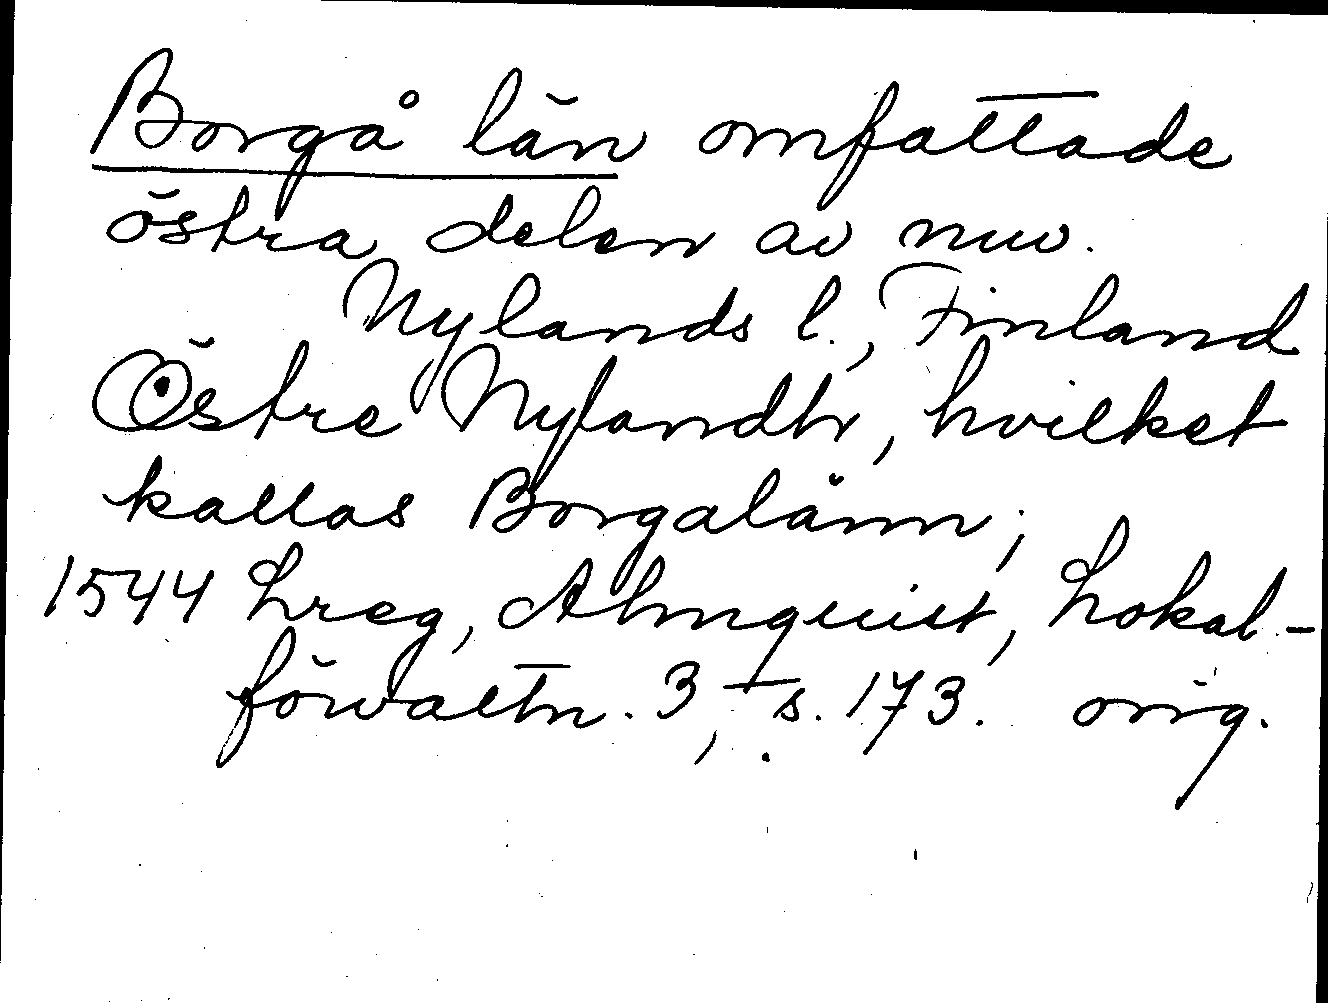 Borgå län omfattade
östra delen av nuv.
Nylands l., Finland
Östre Nylandh, hvilket
kallas Borgalänn;
1544 Lreg, Almquist, Lokal-
förvaltn. 3, s. 173. orig.